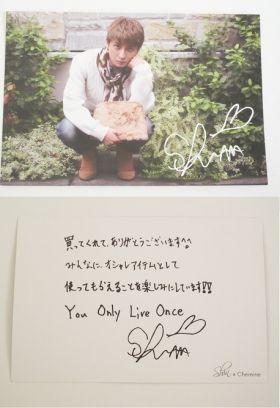 買ってくれて、ありがとうございます^^
みんなに、オシャレアイテムとして
使ってもらえることを楽しみにしています!!
You Only Live Once
Shin x Chereine